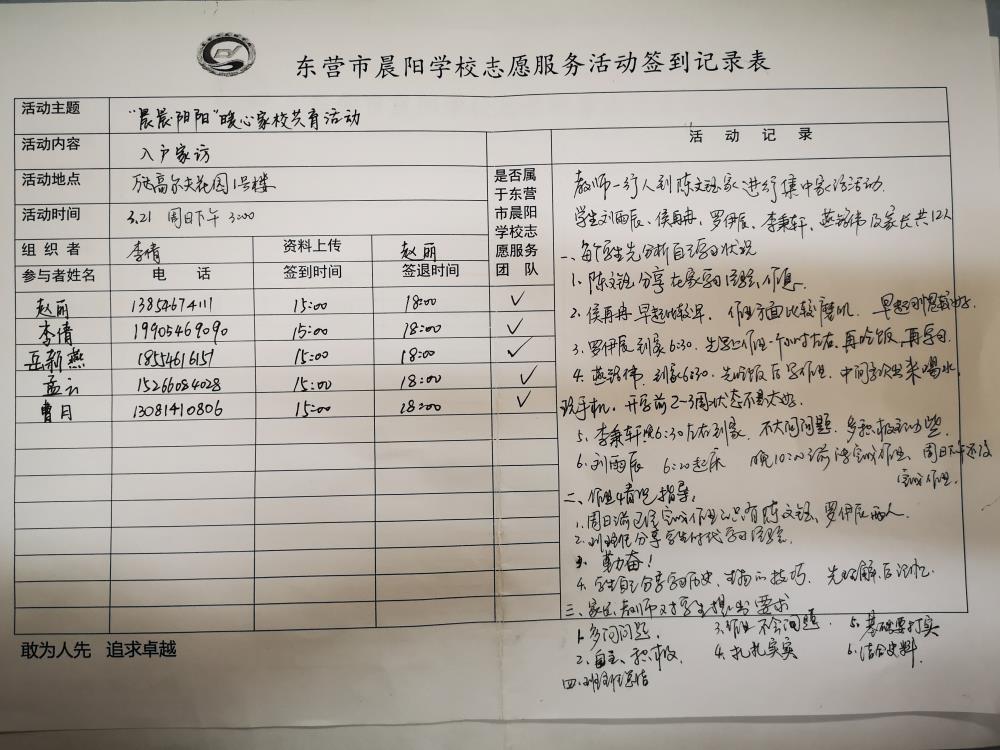 东营市晨阳学校志愿服务活动签到记录表
活动主题 "晨晨阳阳"暖心家校共育活动
活动内容 入户家访
活动地点 高尔夫花园1号楼
活动时间 3.21 周日下午 3:00
组织者 李倩 资料上传 赵丽
参与者姓名 电话 签到时间 签退时间
是否属
于东营
市晨阳
学校志
愿服务
团队
赵丽 13854674111 15:00 18:00 ✓
李倩 19905469090 15:00 18:00 ✓
岳新燕 18554616157 15:00 18:00 ✓
孟云 15266084028 15:00 18:00 ✓
曹月 13081410806 15:00 18:00 ✓
敢为人先 追求卓越
活动记录
教师一行人到陈文钰家进行集中家访活动.
学生刘雨辰、侯冉冉、罗伊辰、李秉轩、燕铭伟及家长共12人
一、每个学生先分析自己学习状况
1、陈文钰分享在家学习经验、作息.
2、侯冉冉早起比较早, 作业方面比较磨叽.
3、罗伊辰到家6:30. 先写作业一个小时左右、再吃饭、再学习.
4、燕铭伟 到家6:30. 先吃饭后写作业. 中间多次出来喝水,
玩手机. 开学前2~3周状态不是太好.
5、李秉轩晚6:30左右到家. 不大问问题. 多积极主动些.
6、刘雨辰 6:20起床 晚10:00前没完成作业、周日下午还没
完成作业.
二、作业情况指导:
1、周日前已经完成作业的只有陈文钰、罗伊辰两人.
2、班主任分享学生时代学习经验.
3、勤奋!
4、学生自己分享学习历史、生物的技巧. 先理解后记忆.
三、家长、教师对学生提出要求
1、多问问题.
2、自主、积极.
3、作业不会问题.
4、扎扎实实
5、基础要打实
6、结合史料.
四、班主任总结